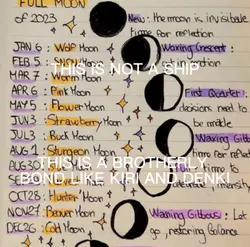 FULL MOON
of 2023
JAN 6 : Wolf Moon
FEB 5 : Moon
MAR 7 : Worm Moon
APR 6 : Pink Moon
MAY 5 : Flower Moon
JUN 3 : Strawberry Moon
JUL 3 : Buck Moon
AUG 1 : Sturgeon Moon
AUG 30
OCT 28 : Hunter Moon
NOV 27 : Beaver Moon
DEC 26 : Cold Moon
New : the moon is invisible
time for reflection
Waxing Crescent :
First Quarter :
decisions need to
be made
Waxing Gibb
Waning Gibbous : Let
go, restoring balance
THIS IS NOT A SHIP
THIS IS A BROTHERLY
BOND LIKE KIRI AND DENKI